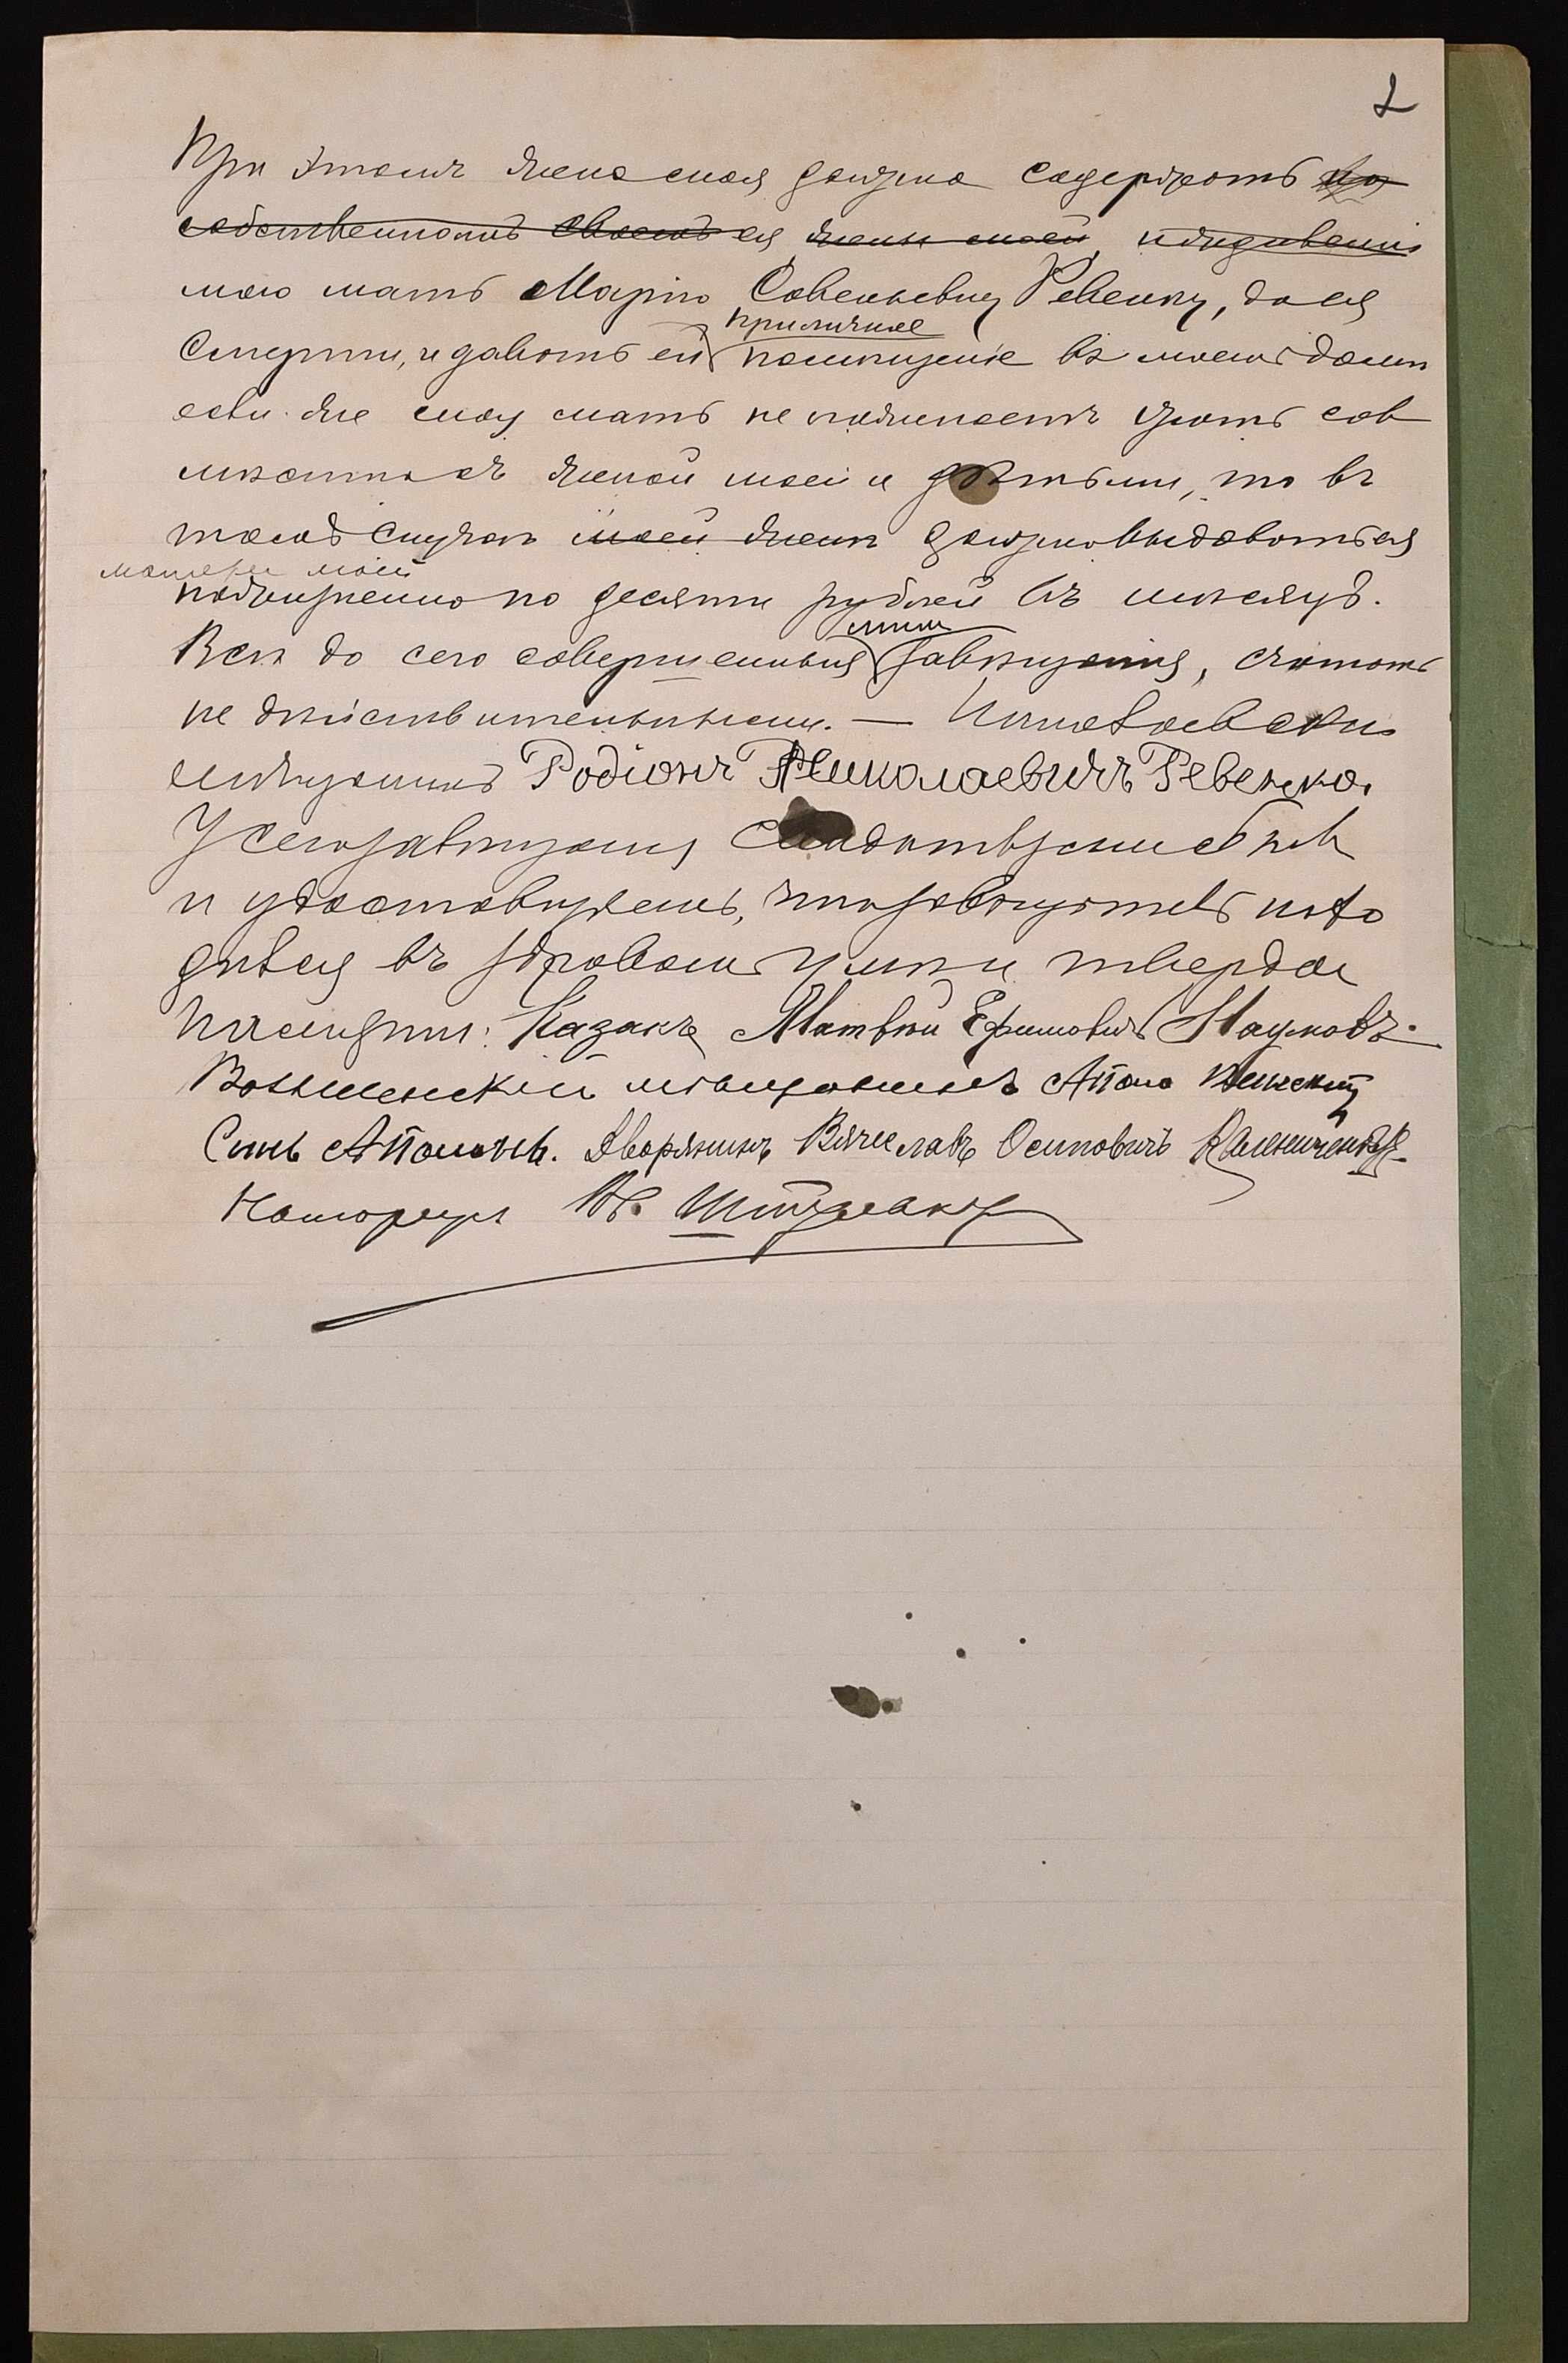 2
При этомъ жена моя должна содержать на
собственномъ своемъ ея жены моей иждивеніи
мою мать Марію Савельевну Ревенку, до ея
приличное
смерти, и давать ей помѣщеніе въ моемъ домѣ
если же моя мать не пожелаетъ жить сов
мѣстно съ женой моей и дѣтьми, то въ
томъ случаѣ моей женѣ должно выдаваться
матери моей
пожизненно по десяти рублей въ мѣсяцъ.
мною
Всѣ до сего совершенныя завѣщанія, считать
не дѣйствительными. —
мѣщанинъ Родіонъ Николаевичъ Ревенко.
У сего завѣщанія свидѣтелями были
и удостовѣряемъ, что завѣщатель нахо
дился въ здравомъ умѣ и твердой
памяти: Казакъ Матвѣй Ефимовичъ Наумовъ.
мѣщанинъ
Сынъ Дворянинъ Вячеславъ Осиповичъ
Нотаріусъ